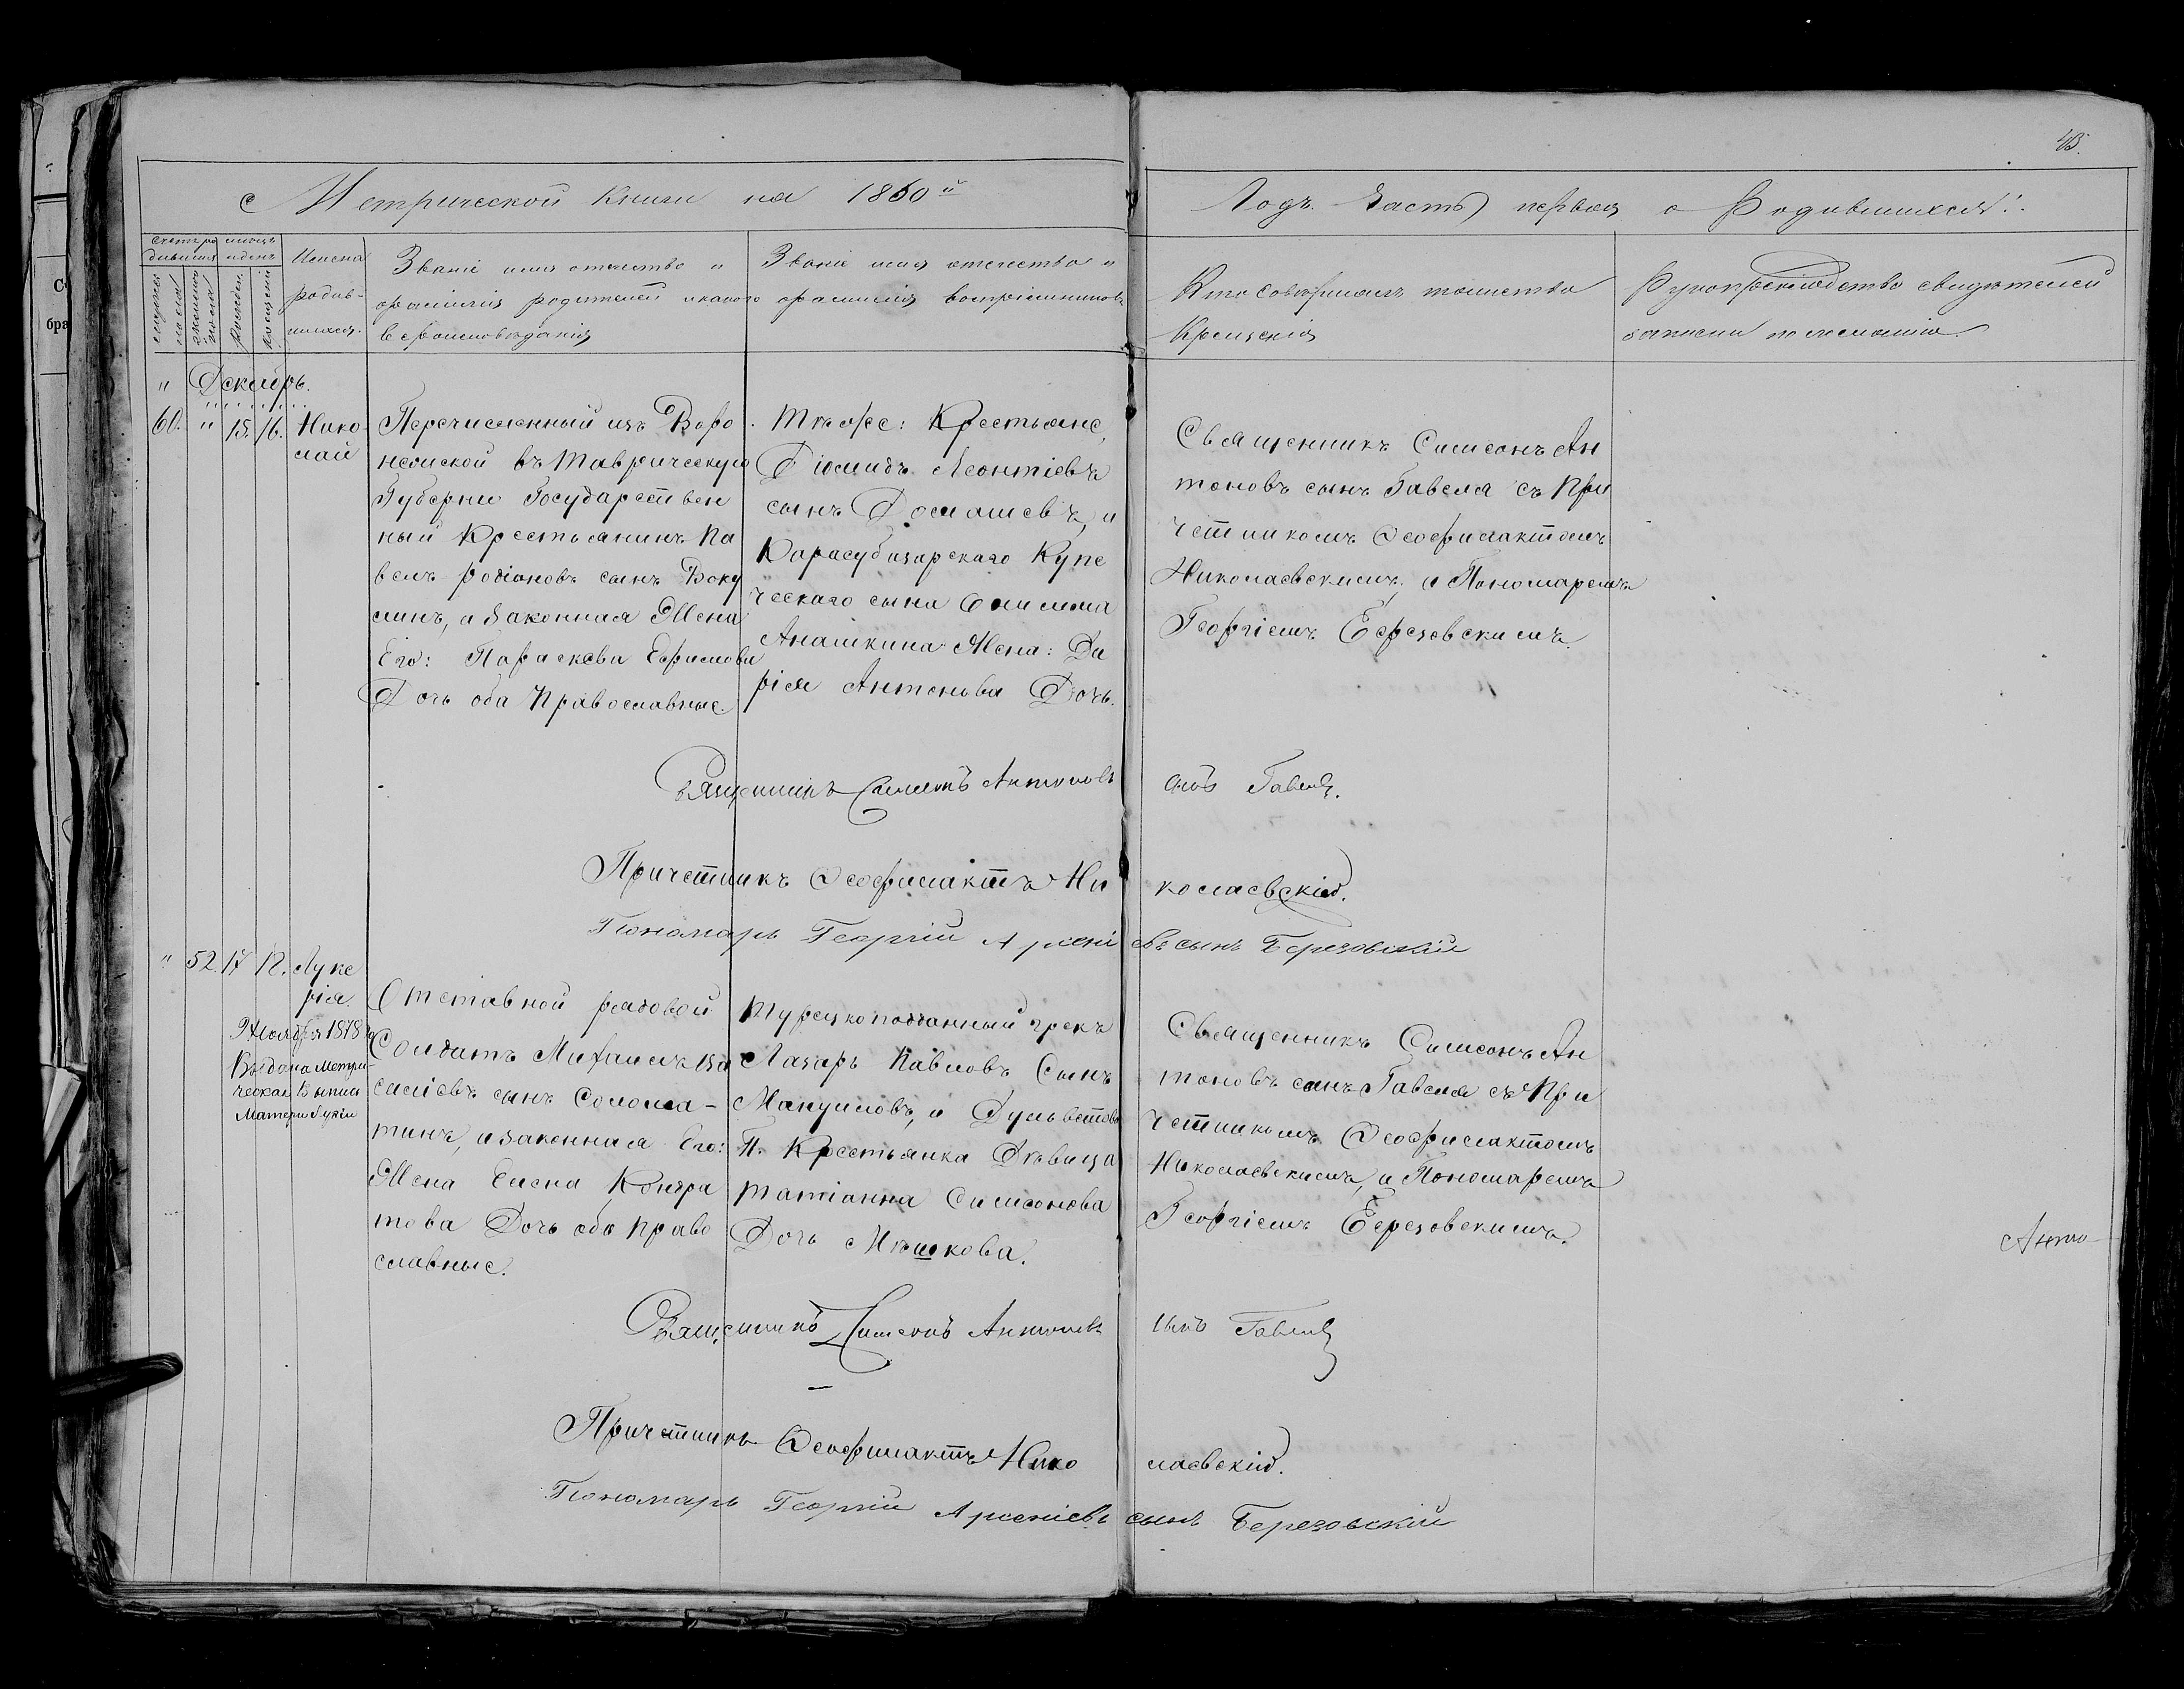 43.
Метрической Книги на 1860й
Годъ. Часть первая о Родившихся:
Счетъ ро дившихся
месецъ и день
мужеска пола
женска пола
рожден.
крещени
Имена родив- шихся.
Званіе имя отчество и
фамилія родителей и какого
вероисповеданія
Званіе имя отчество и
фамилія воспріемниковъ
Кто совершилъ таинство
Крещенія
Рукоприкладство свидетелей
записи по желанію
" Декабрь.
60. " 15. 16. Нико
лай
Перечисленный изъ Воро
нежской въ Таврическую
Губернію Государствен
ный Крестьянинъ Па
велъ Родіоновъ сынъ Воку
линъ, и законная Жена
Его: Параскева Ефимова
Дочь оба Православные.
Теже: Крестьяне,
Діомидъ Леонтіевъ
сынъ Домашевъ, и
Карасубазарскаго Купе
ческаго сына Онисима
Анашкина Жена: Да
рія Антонова Дочь.
Священникъ Симеонъ Ан
тоновъ сынъ Гавеля съ При
четникомъ Феофилактомъ
Николаевскимъ, и Пономаремъ
Георгіемъ Березовскимъ.
Священникъ Симеонъ Антоновъ сынъ Гавеля.
Причетникъ Феофилактъ Николаевскій.
Пономарь Георгій Арсеніевъ сынъ Березовскій
" 52. 17 18. Луке
рія.
9 Ноября 1878 г.
Выдана Метри-
ческая Выпись
Матери Лукіи
Отставной рядовой
Солдатъ Михаилъ Ва
силіевъ сынъ Солома-
тинъ, и законная Его:
Жена Елена Кондра
това Дочь оба Право
славные.
Турецкоподданный грекъ
Лазарь Павловъ Сынъ
Мануиловъ, и
Крестьянка Девица
Татіанна Симеонова
Дочь Мешкова.
Священникъ Симеонъ Ан
тоновъ сынъ Гавеля съ При
четникомъ Феофилактомъ
Николаевскимъ, и Пономаремъ
Георгіемъ Березовскимъ.
Анто-
Священникъ Симеонъ Антоновъ сынъ Гавеля
Причетникъ Феофилактъ Николаевскій.
Пономарь Георгій Арсеніевъ сынъ Березовскій